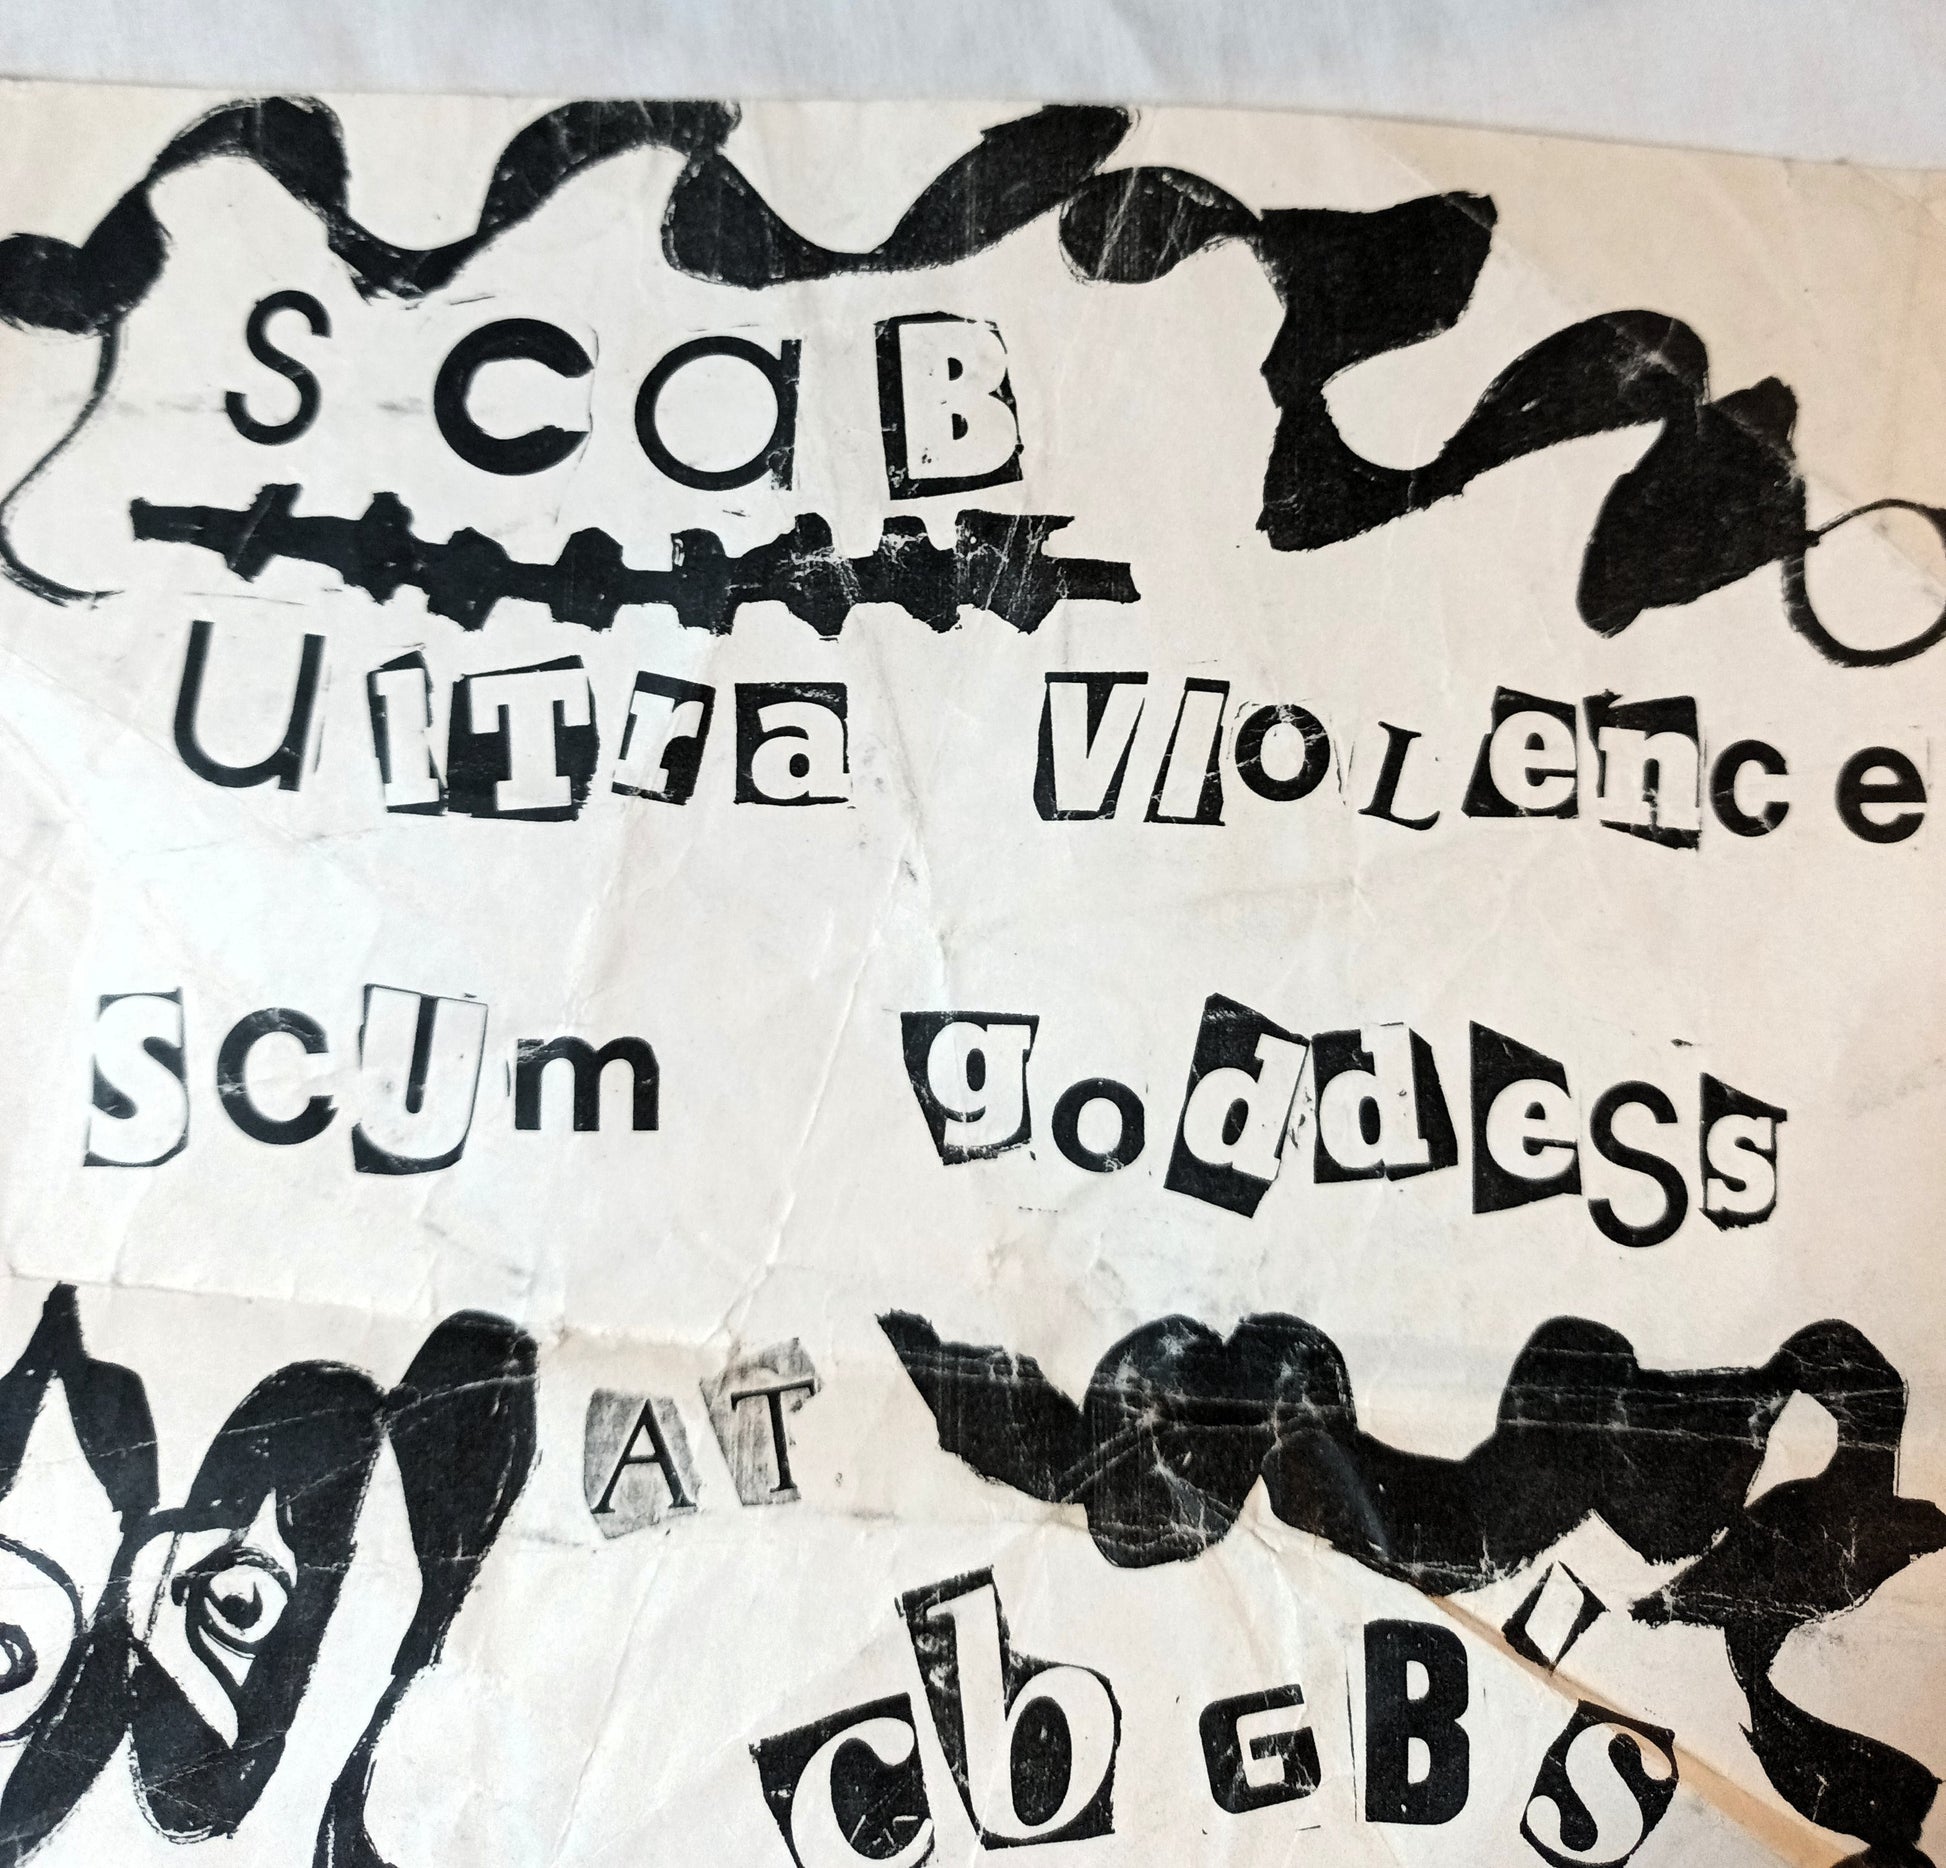 ScaB
UlTra VIOLence
SCUm goddeSs
AT
cbGB's